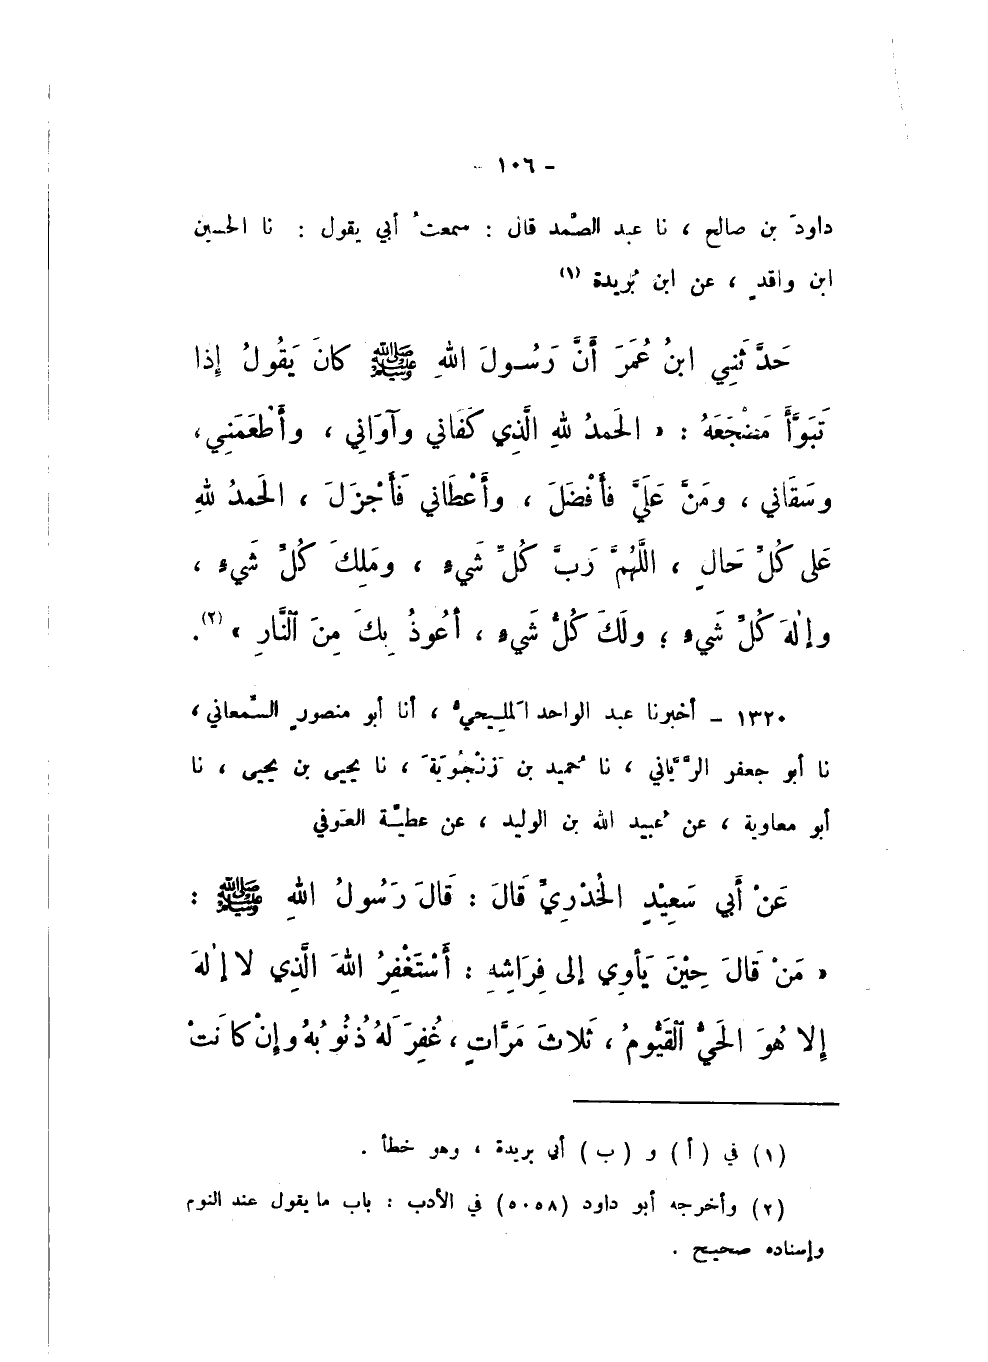 - ١٠٦ -
داودَ بن صالح ، نا عبد الصَّمد قال : سمعتُ أبي يقول : نا الحسين
ابن واقدٍ ، عن ابن بُريدة (١)
حَدَّثَنِي ابنُ عُمَرَ أَنَّ رَسُولَ اللهِ ﷺ كانَ يَقُولُ إِذا
تَبَوَّأَ مَضْجَعَهُ : « الحَمدُ للهِ الَّذِي كَفَاني وآوَاني ، وأَطْعَمَنِي،
وسَقَاني ، ومَنَّ عَلَيَّ فأَفْضَلَ ، وأَعْطَاني فَأَجْزَلَ ، الحَمدُ للهِ
عَلى كُلِّ حَالٍ ، اللَّهُمَّ رَبَّ كُلِّ شَيءٍ ، ومَلِكَ كُلِّ شَيءٍ ،
وإلٰهَ كُلِّ شَيءٍ ؛ ولَكَ كُلُّ شَيءٍ ، أَعُوذُ بِكَ مِنَ ٱلنَّارِ » (٢).
١٣٢٠ - أخبرنا عبد الواحد المَلِيحيُّ ، أنا أبو منصورٍ السَّمعاني ،
نا أبو جعفر الرَّيَّاني ، نا حُميد بن زَنْجُويَةَ ، نا يحيى بن يحيى ، نا
أبو معاوية ، عن عُبيد الله بن الوليد ، عن عطيَّة العَوفي
عَنْ أَبي سَعِيْدٍ الخُدْرِيِّ قَالَ : قَالَ رَسُولُ اللهِ ﷺ :
« مَنْ قَالَ حِيْنَ يَأوِي إلى فِرَاشِهِ : أَسْتَغْفِرُ اللهَ الَّذِي لا إلٰهَ
إلا هُوَ الحَيُّ ٱلْقَيُّومُ ، ثَلاثَ مَرَّاتٍ ، غُفِرَ لَهُ ذُنُوبُهُ وإِنْ كانَتْ
(١) في (أ) و (ب) أبي بريدة ، وهو خطأ .
(٢) وأخرجه أبو داود (٥٠٥٨) في الأدب : باب ما يقول عند النوم
وإسناده صحيح .